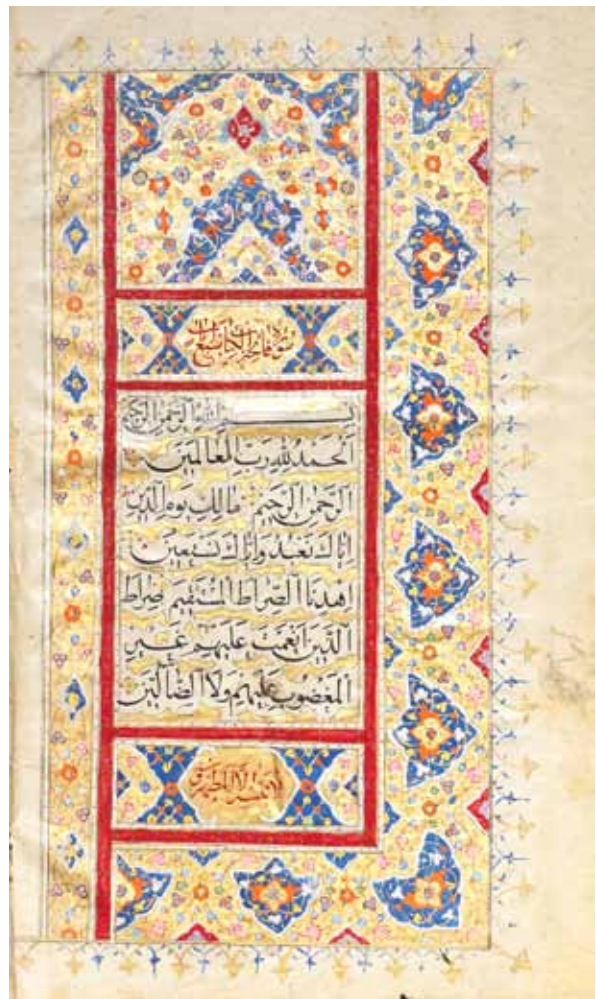 سورة فاتحة الكتاب سبع آيات
بِسْمِ اللهِ الرَّحْمٰنِ الرَّحِيمِ
اَلْحَمْدُ لِلّٰهِ رَبِّ الْعَالَمِينَ
اَلرَّحْمٰنِ الرَّحِيمِ مَالِكِ يَوْمِ الدِّينِ
اِيَّاكَ نَعْبُدُ وَاِيَّاكَ نَسْتَعِينُ
اِهْدِنَا الصِّرَاطَ الْمُسْتَقِيمَ صِرَاطَ
الَّذِينَ اَنْعَمْتَ عَلَيْهِمْ غَيْرِ
الْمَغْضُوبِ عَلَيْهِمْ وَلَا الضَّالِّينَ
لا يمسه الا المطهرون